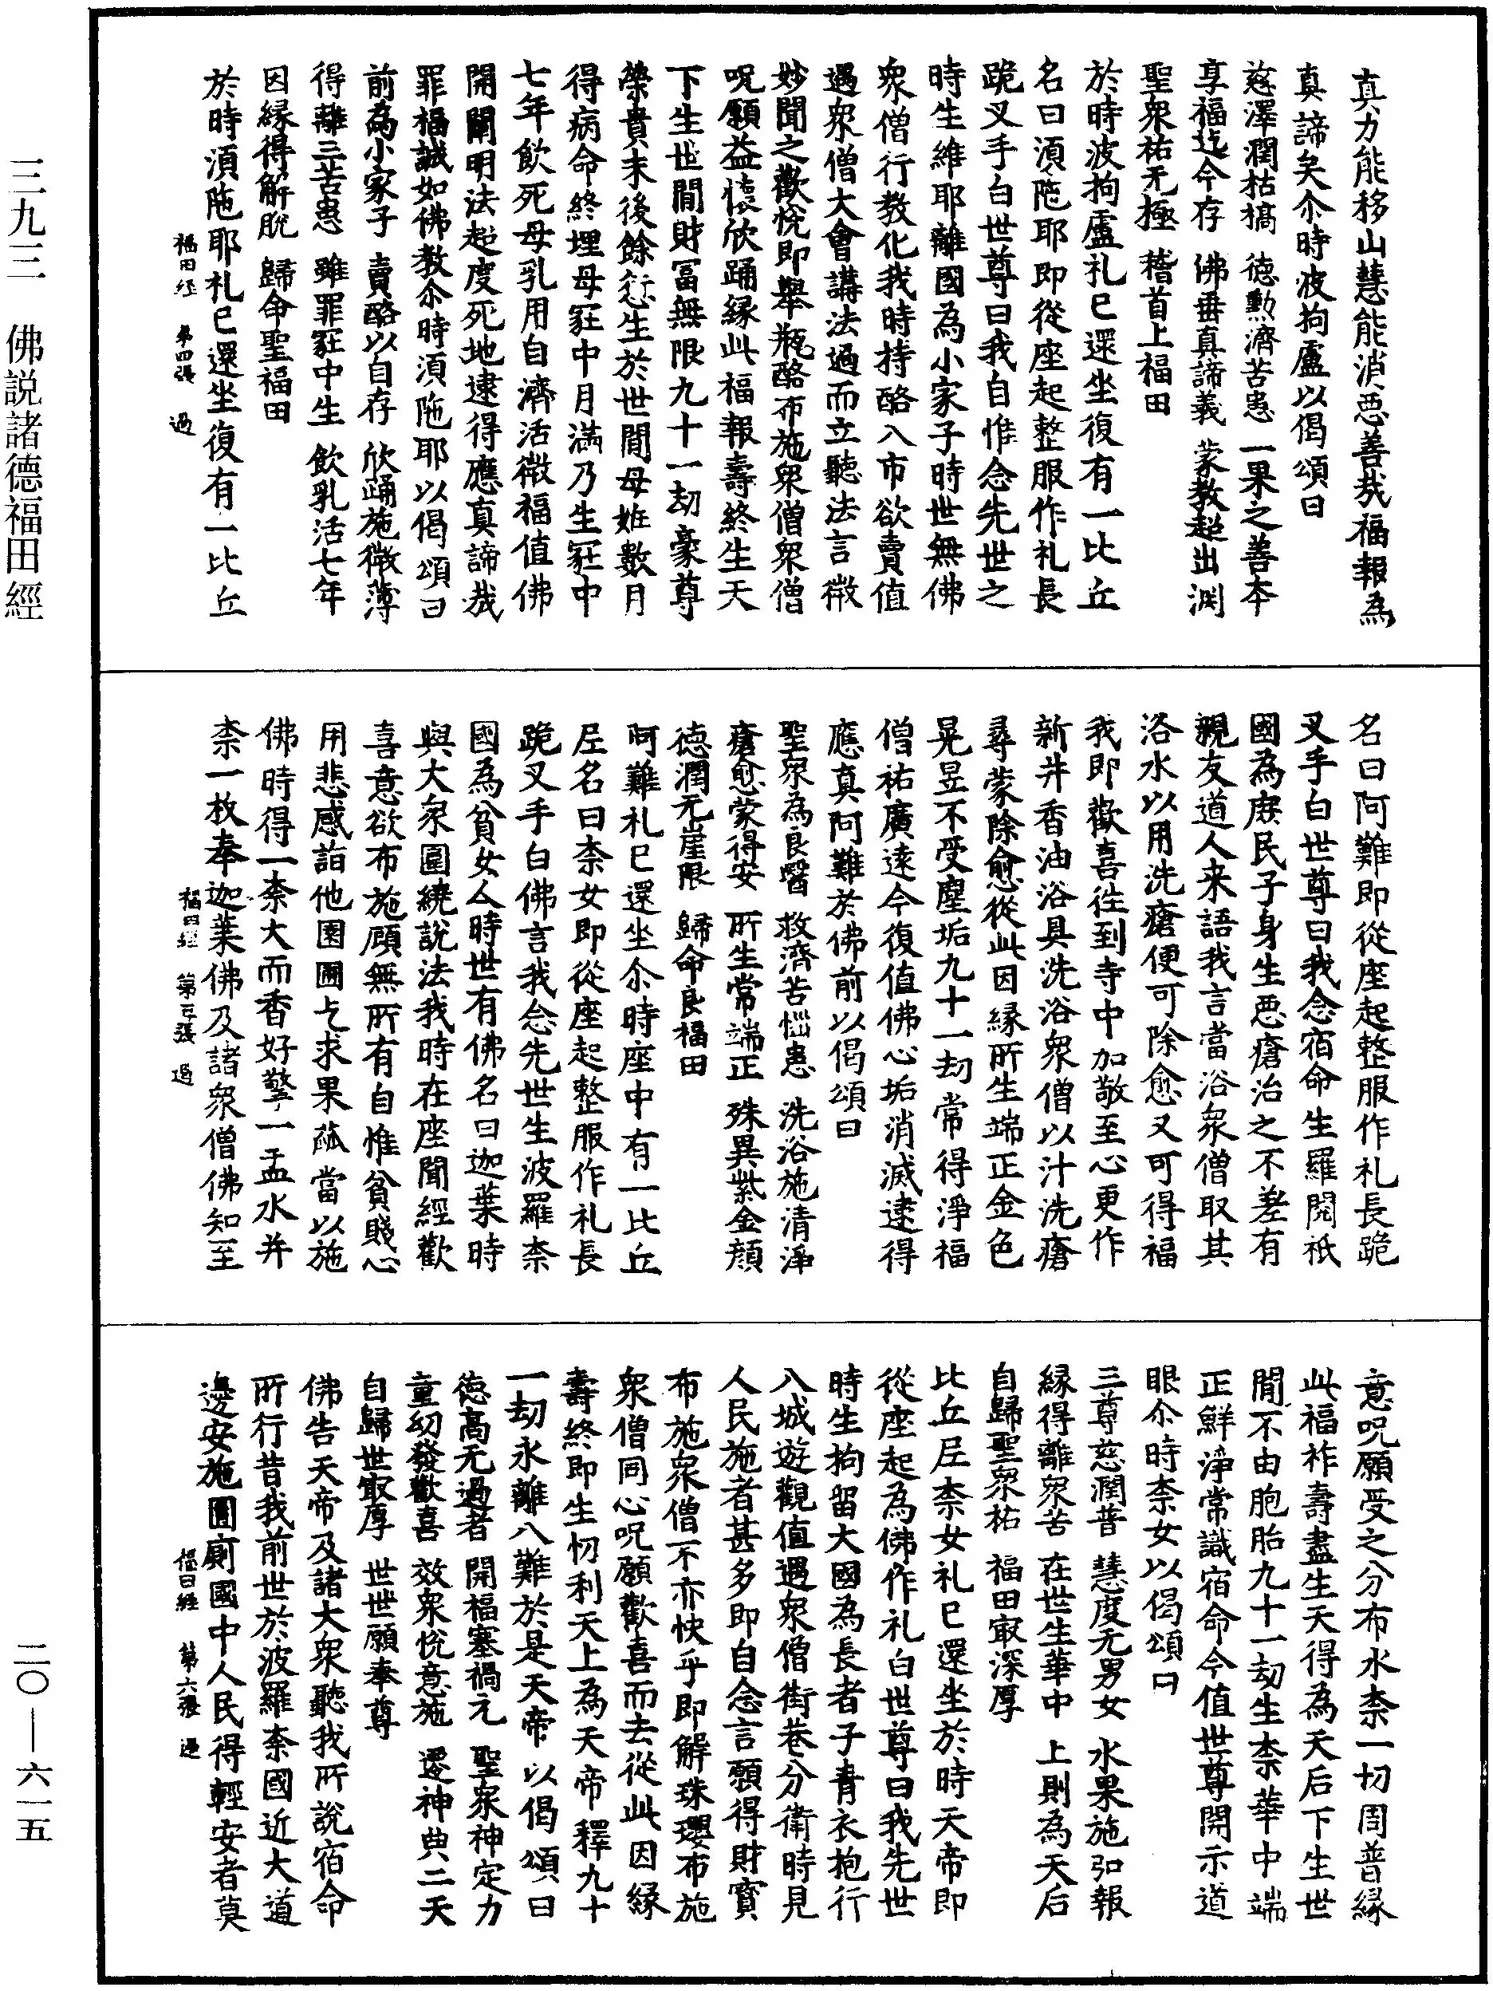 真力能移山慧能消惡善哉福報為
真諦矣尒時波拘盧以偈頌曰
慈澤潤枯槁 德勲濟苦患 一果之善本
享福迄今存 佛垂真諦義 蒙教超出渊
聖衆祐无極 稽首上福田
於時波拘盧礼已還坐復有一比丘
名曰湏陁耶即從座起整服作礼長
跪叉手白世尊曰我自惟念先世之
時生維耶離國為小家子時世無佛
衆僧行教化我時持酪入市欲賣值
遇衆僧大會講法過而立聽法言微
妙聞之歡悅即舉瓶酪布施衆僧衆僧
呪願益懷欣踊緣此福報壽終生天
下生世間財冨無限九十一劫豪尊
榮貴末後餘愆生於世間母姙數月
得病命終埋母冢中月滿乃生冢中
七年飲死母乳用自濟活微福值佛
開闡明法超度死地逮得應真諦哉
罪福誠如佛教尒時湏陁耶以偈頌曰
前為小家子 賣酪以自存 欣踊施微薄
得離三苦患 雖罪冢中生 飲乳活七年
因緣得解脫 歸命聖福田
於時湏陁耶礼已還坐復有一比丘
福田経 第四張 過
名曰阿難即從座起整服作礼長跪
叉手白世尊曰我念宿命生羅閱祇
國為庻民子身生惡瘡治之不差有
親友道人来語我言當浴衆僧取其
洛水以用洗瘡便可除愈又可得福
我即歡喜徃到寺中加敬至心更作
新井香油浴具洗浴衆僧以汁洗瘡
尋蒙除愈從此因緣所生端正金色
晃昱不受塵垢九十一劫常得淨福
僧祐廣遠今復值佛心垢消滅逮得
應真阿難於佛前以偈頌曰
聖衆為良醫 救濟苦惱患 洗浴施清淨
瘡愈蒙得安 所生常端正 殊異紫金顔
德潤无崖限 歸命良福田
阿難礼已還坐尒時座中有一比丘
尼名曰柰女即從座起整服作礼長
跪叉手白佛言我念先世生波羅柰
國為貧女人時世有佛名曰迦葉時
與大衆圍繞說法我時在座聞經歡
喜意欲布施顧無所有自惟貧賤心
用悲感詣他園圃乞求果蓏當以施
佛時得一柰大而香好擎一盂水并
柰一枚奉迦葉佛及諸衆僧佛知至
福田経 第五張 過
意呪願受之分布水柰一切周普緣
此福祚壽盡生天得為天后下生世
間不由胞胎九十一劫生柰華中端
正鮮淨常識宿命今值世尊開示道
眼尒時柰女以偈頌曰
三尊慈潤普 慧度无男女 水果施弘報
緣得離衆苦 在世生華中 上則為天后
自歸聖衆祐 福田㝡深厚
比丘尼柰女礼已還坐於時天帝即
從座起為佛作礼白世尊曰我先世
時生拘留大國為長者子青衣抱行
入城遊觀值遇衆僧街巷分衛時見
人民施者甚多即自念言願得財寳
布施衆僧不亦快乎即解珠瓔布施
衆僧同心呪願歡喜而去從此因緣
壽終即生忉利天上為天帝釋九十
一劫永離八難於是天帝以偈頌曰
德高无過者 開福塞禍元 聖衆神定力
童幼發歡喜 效衆悅意施 還神典二天
自歸世㝡厚 世世願奉尊
佛告天帝及諸大衆聽我所說宿命
所行昔我前世於波羅柰國近大道
邊安施圊廁國中人民得輕安者莫
福田経 第六張 過
三九三 佛説諸德福田經
二〇—六一五